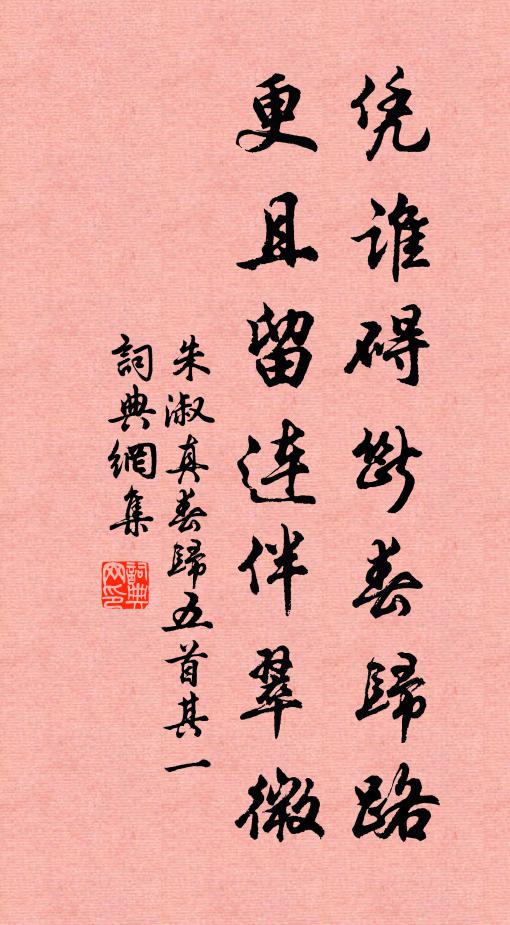 凭谁碍断春歸路
更且留連伴翠微
朱淑真春歸五首其一
詞典網集
詞典網印